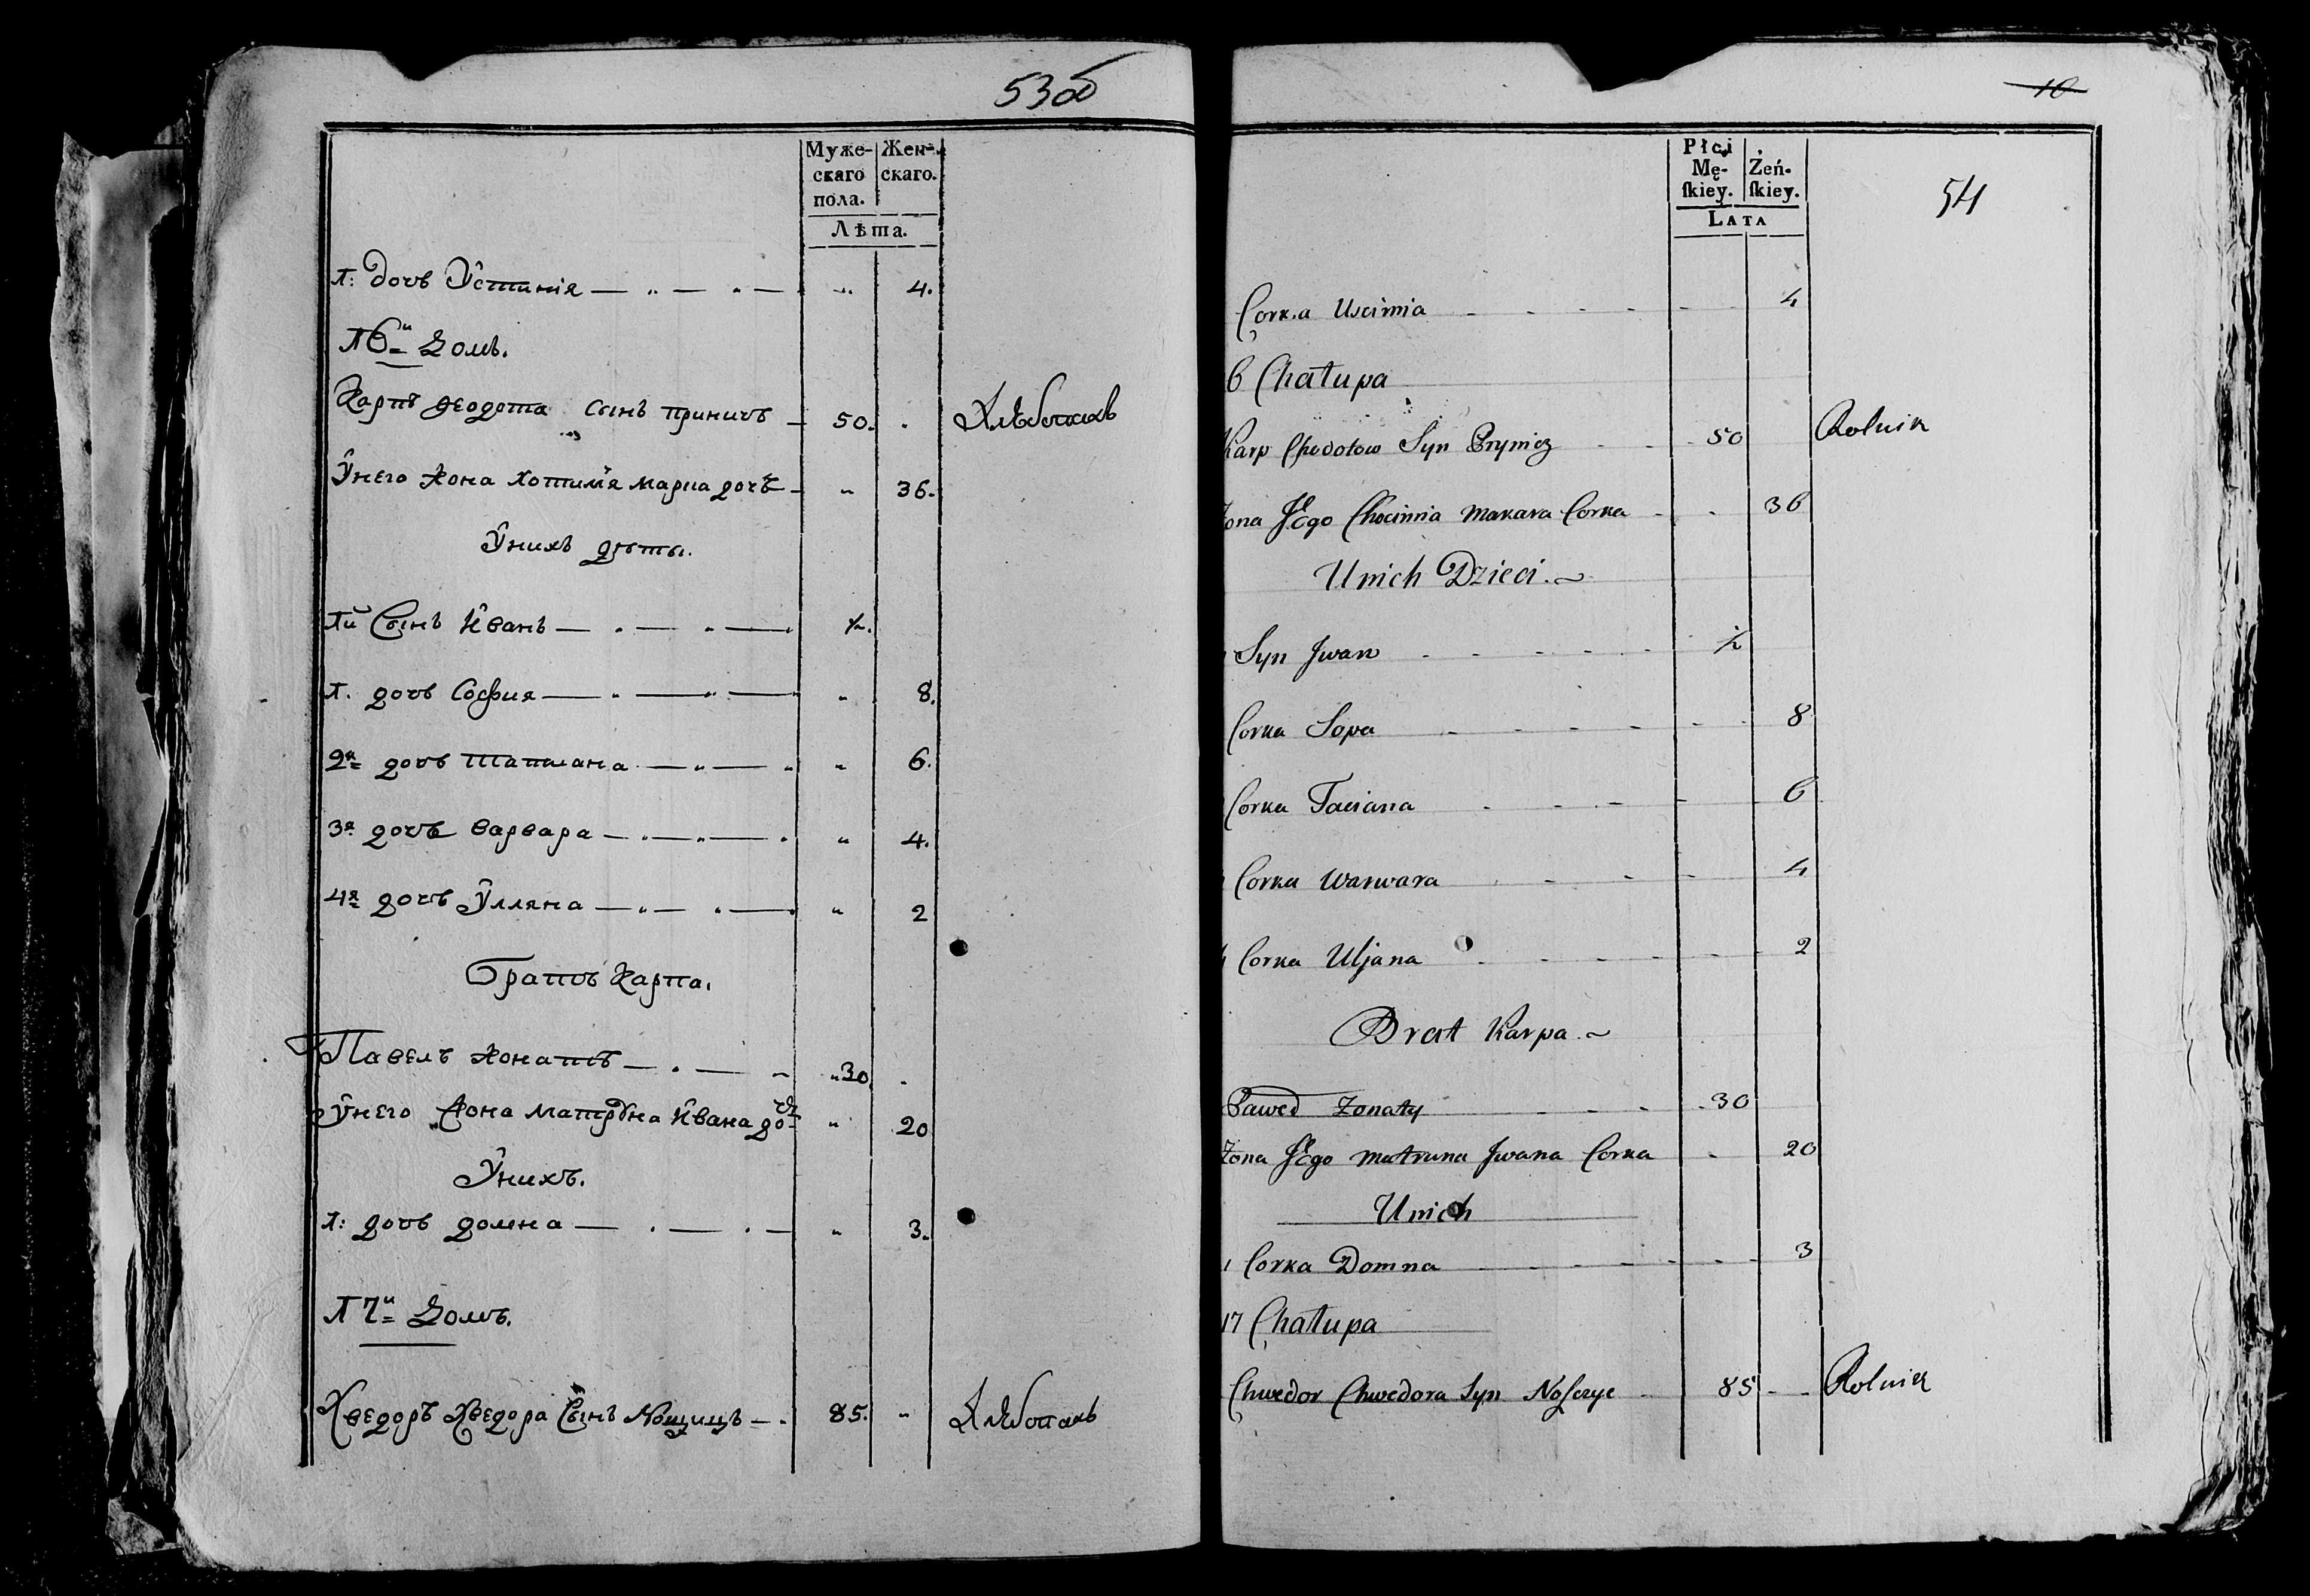 53об
Муже-
скаго
пола.
Жен-
скаго.
Лѣта.
1: дочь Устинія — „ — „ — „ 4.
16й Домъ.
Карпъ Ѳеодота Сынъ Приничъ — 50. „ Хлѣбопашъ
Унего жона Хотимя Макара дочь — „ 36.
Унихъ дѣти.
1й Сынъ Иванъ — „ — „ — ½.
1. дочь София — „ — „ — „ 8.
2я дочь Татиана — „ — „ „ 6.
3я дочь Варвара — „ — „ — „ 4.
4я дочь Улляна — „ — „ — „ 2
Братъ Карпа.
Павелъ жонатъ — „ — „ 30 „
Унего Жона Матруна Ивана дочь „ 20
Унихъ.
1: дочь Домна — . — . — „ 3.
17й Домъ.
Хведоръ Хведора Сынъ Нощицъ — „ 85. „ Хлѣбопашъ
10
Płci
Mę-
ſkiey.
Żeń-
ſkiey.
Lata
54
Corka Uscimia - - - - - 4
6 Chałupa
Karp Chodotow Syn Prynicz - - 50 Rolnik
Zona Jego Chocimia Makara Corka - - 36
Unich Dzieci. ~
Syn Jwan - - - - - ½
Corka Sopa - - - - - 8
Corka Taciana - - - - - 6
Corka Warwara - - - - 4
Corka Uljana - - - - - 2
Brat Karpa. ~
Paweł Zonaty - - - 30
Zona Jego Matruna Jwana Corka - 20
Unich
1 Corka Domna - - - - - 3
17 Chałupa
Chwedor Chwedora Syn Noſczyc - 85 - - Rolnik